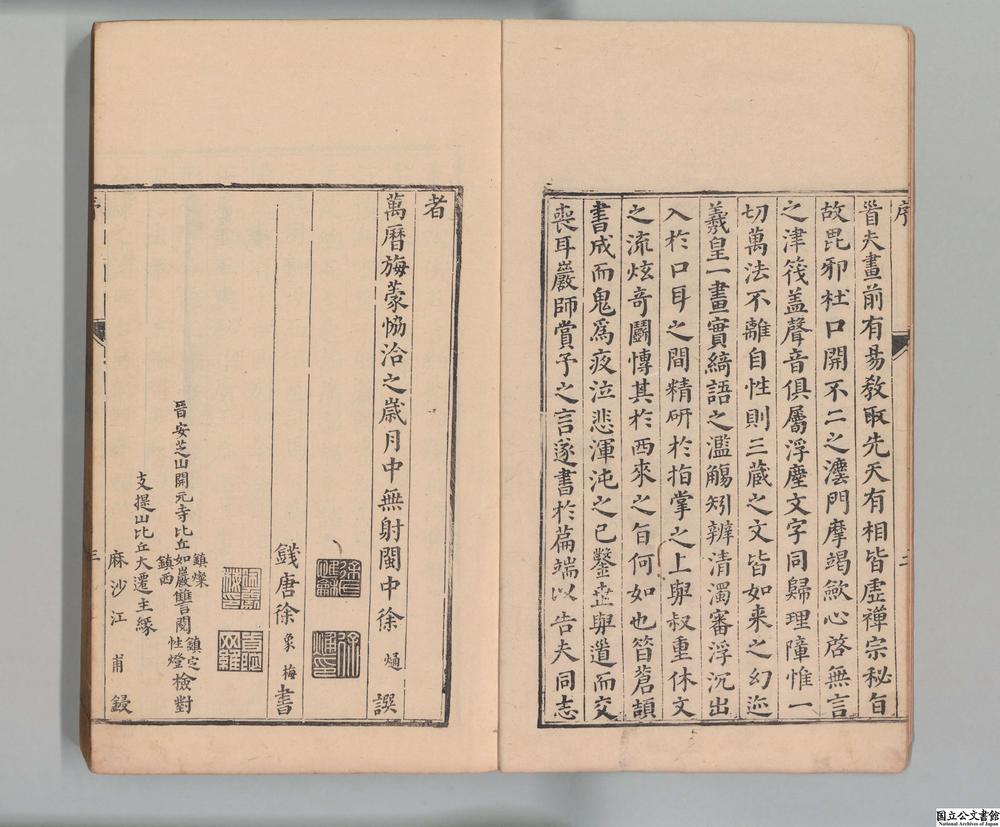 序
旨夫畫前有易敎取先天有相皆虛禪宗秘旨
故毘邪杜口開不二之灋門摩竭歛心啓無言
之津筏盖聲音俱屬浮塵文字同歸理障惟一
切萬法不離自性則三藏之文皆如来之幻迹
羲皇一畫實綺語之濫觴矧辨清濁審浮沉出
入於口耳之間精研於指掌之上與叔重休文
之流炫竒鬬愽其於西來之旨何如也昔蒼頡
書成而鬼爲夜泣悲渾沌之已鑿
與遣而交
喪耳巖師賞予之言遂書於萹端以告夫同志
二
者
萬曆旃蒙恊洽之歳月中無射閩中徐𤊹譔
錢唐徐象梅書
晉安芝山開元寺比丘如巖讐閱
鎮燦
鎮西
鎮定
性燈
檢對
支提山比丘大遷主緣
麻沙江甫鋟
三
国立公文書館
National Archives of Japan